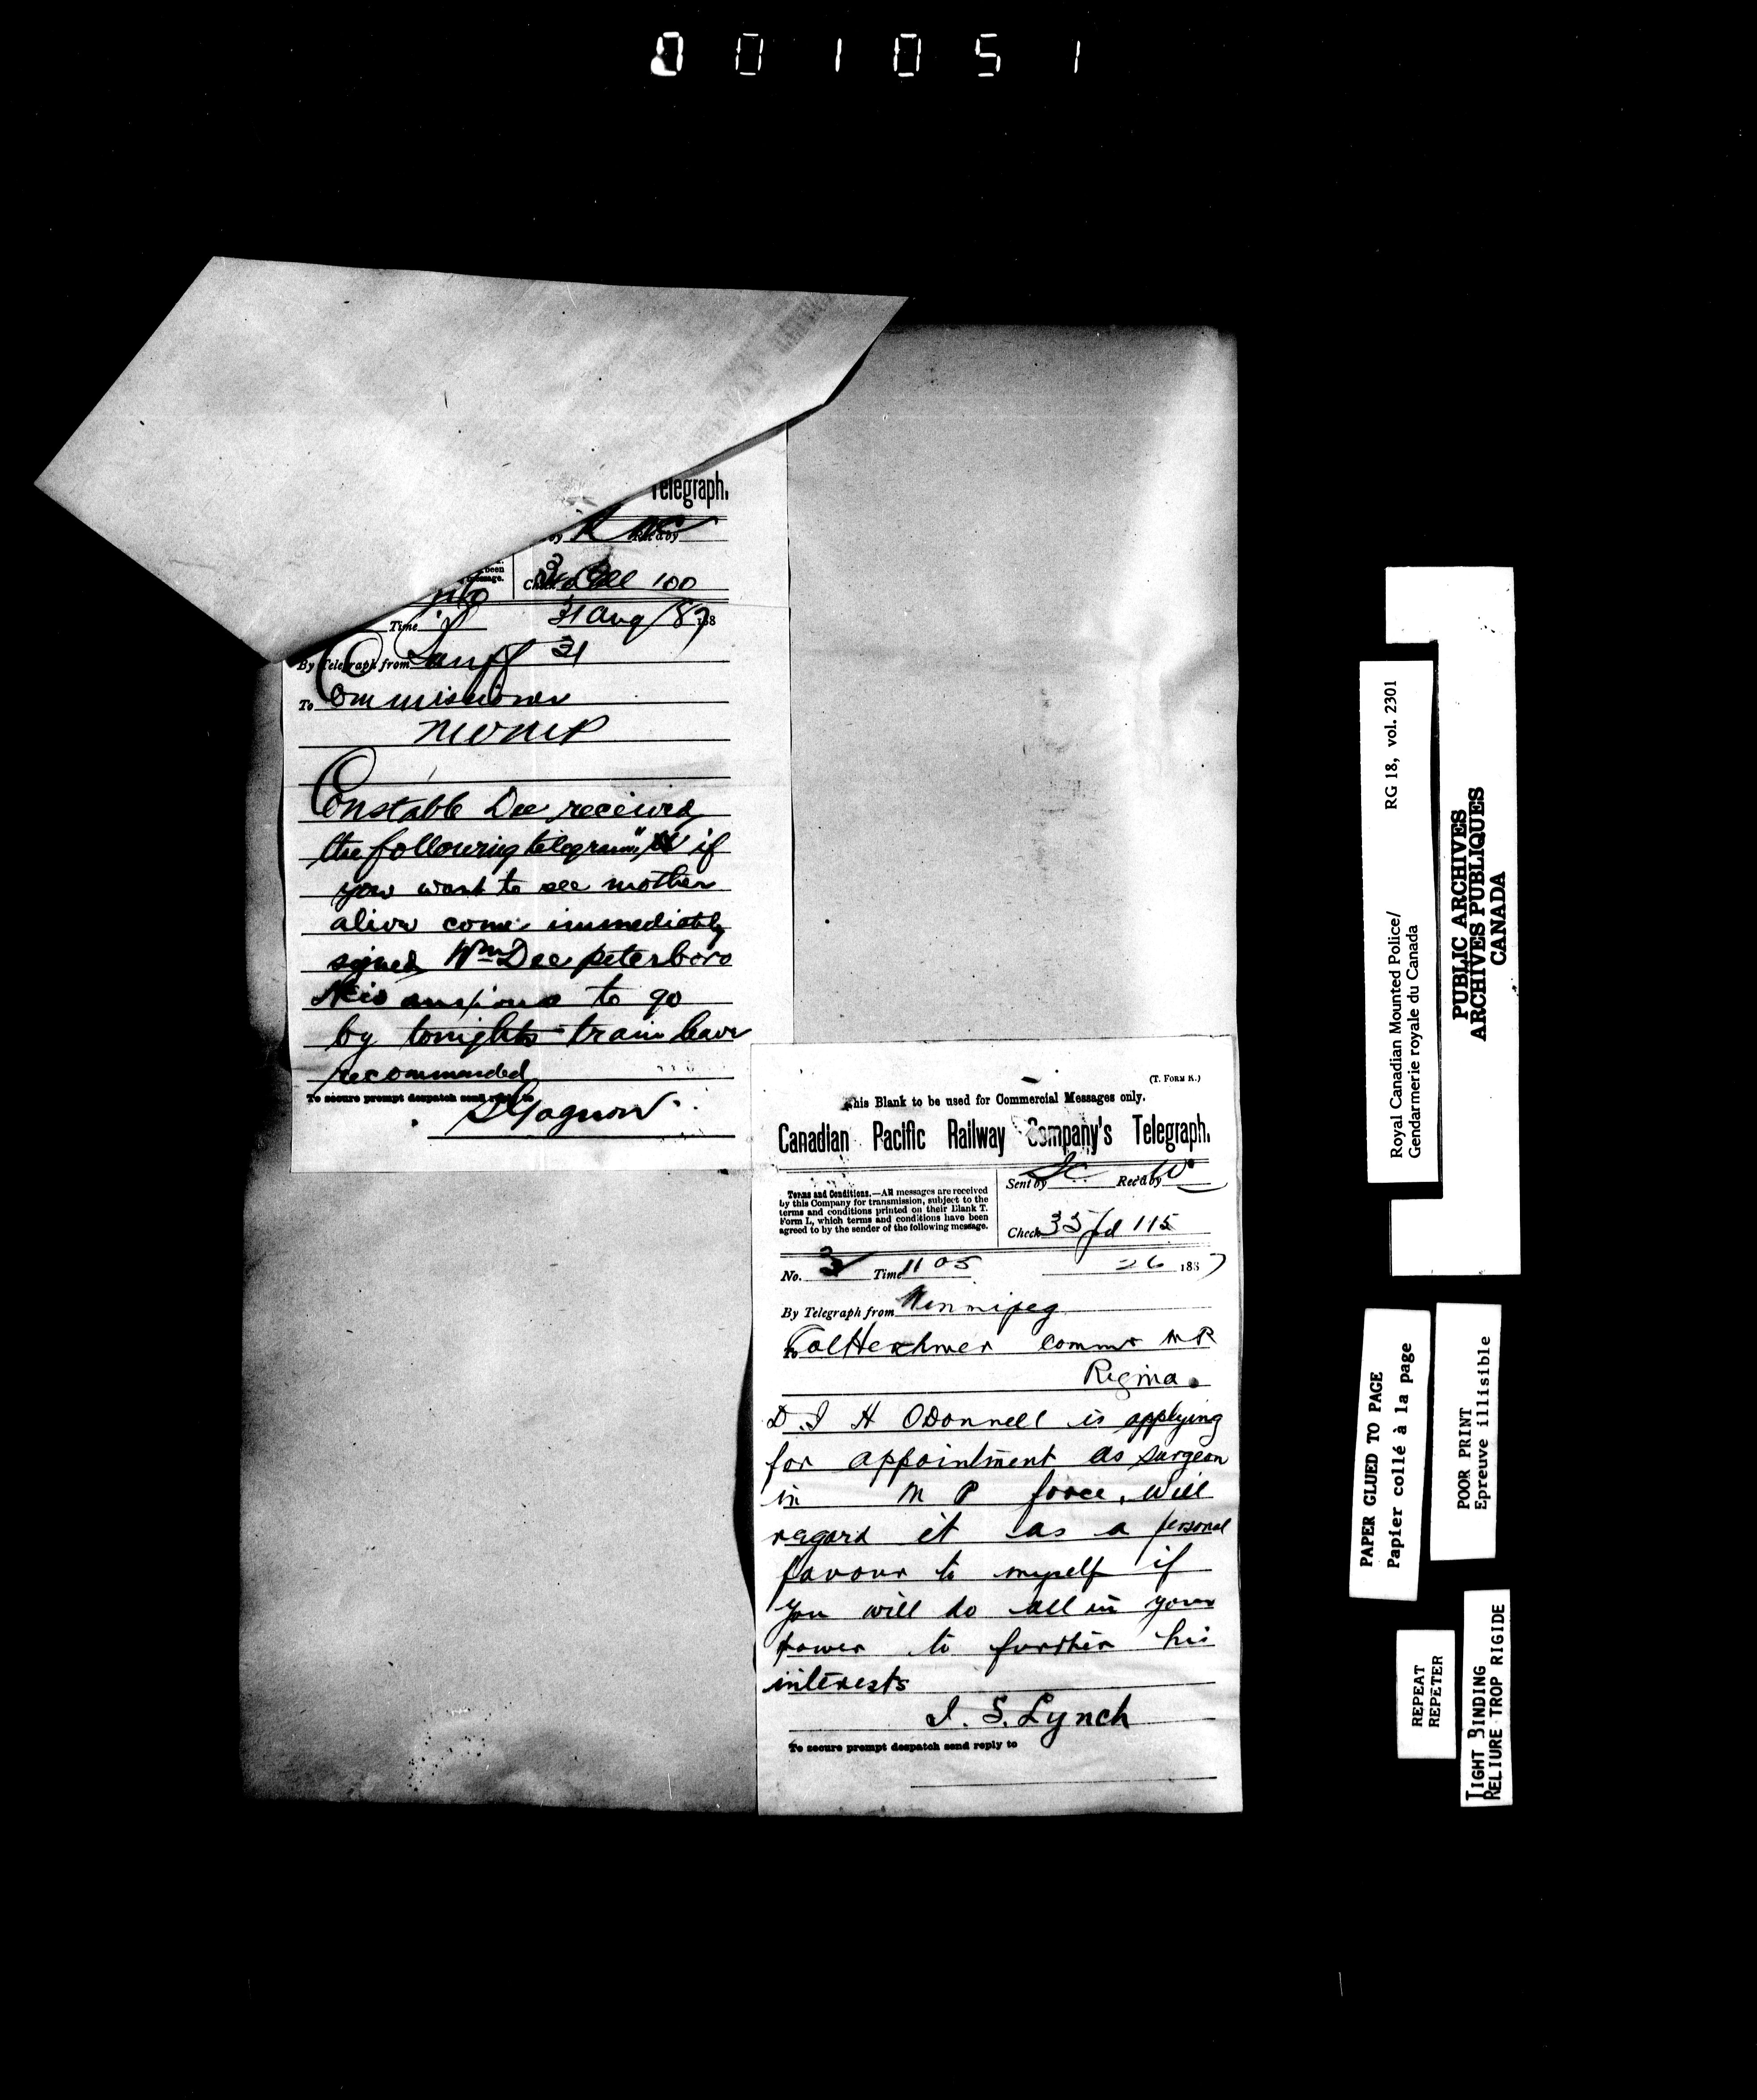 001051
Telegraph.
by Rec'd by
been
message.
Check Coll 100
Time 31 Aug /87 188
By Telegraph from Banff 31
To Commissioner
NWMP
Constable Dee received
the following telegram " if
you want to see mother
alive come immediately
signed Wm Dee peterboro
He is anxious to go
by tonights train leave
recommended
To secure prompt despatch send reply to
S Gagnon
(T. FORM K.)
This Blank to be used for Commercial Messages only.
Canadian Pacific Railway Company's Telegraph.
Terms and Conditions.—All messages are received
by this Company for transmission, subject to the
terms and conditions printed on their Blank T.
Form L, which terms and conditions have been
agreed to by the sender of the following message.
Sent by Rec'd by W
Check 35 pd 115
No. 3 Time 11 05 26 1887
By Telegraph from Winnipeg
To Col Herchmer commr M P
Regina.
D. J H ODonnell is applying
for appointment as surgeon
in M P force, will
regard it as a personal
favour to myself if
you will do all in your
power to further his
interests
J. S. Lynch
To secure prompt despatch send reply to
Royal Canadian Mounted Police/ RG 18, vol. 2301
Gendarmerie royale du Canada
PUBLIC ARCHIVES
ARCHIVES PUBLIQUES
CANADA
PAPER GLUED TO PAGE
Papier collé à la page
POOR PRINT
Epreuve illisible
REPEAT
REPETER
TIGHT BINDING
RELIURE TROP RIGIDE